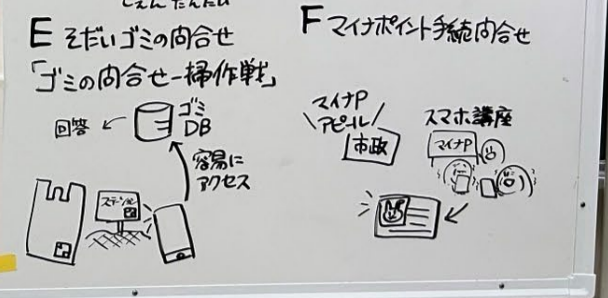 E そだいゴミの問合せ
「ゴミの問合せ一掃作戦」
回答
ゴミ
DB
容易に
アクセス
F マイナポイント手続問合せ
マイナP
アピール
市政
スマホ講座
マイナP